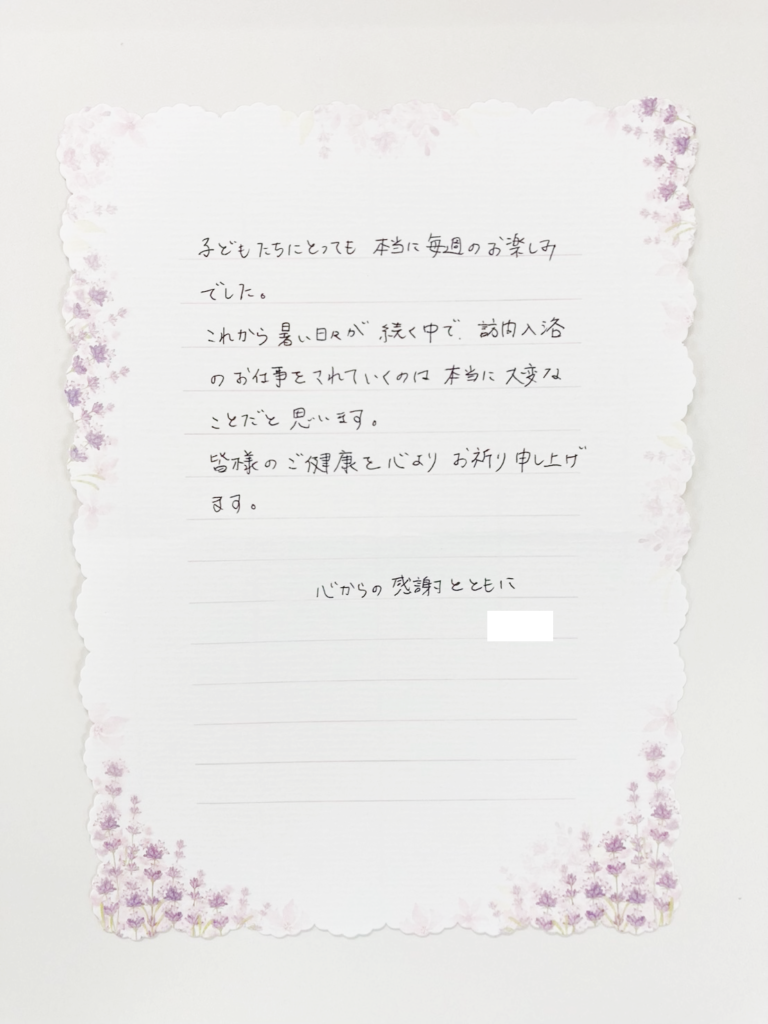 子どもたちにとっても 本当に毎週のお楽しみ
でした。
これから暑い日々が 続く中で、訪問入浴
のお仕事をされていくのは 本当に大変な
ことだと思います。
皆様のご健康を心より お祈り申し上げ
ます。
心からの感謝とともに